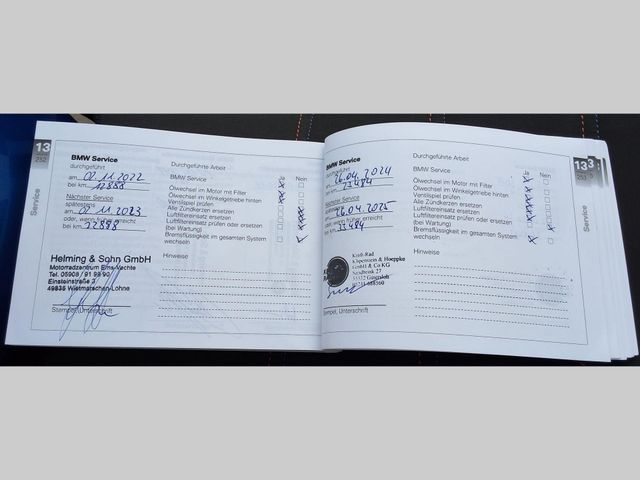 13
252
Service
BMW Service
durchgeführt
am 02.11.2022
bei km 12888
Nächster Service
spätestens
am 02.11.2023
oder, wenn früher erreicht
bei km 22888
Helming & Sohn GmbH
Motorradzentrum Ems-Vechte
Tel. 05908 / 91 99 90
Einsteinstraße 3
49835 Wietmarschen-Lohne
Stempel, Unterschrift
Durchgeführte Arbeit
Ja Nein
BMW Service
Ölwechsel im Motor mit Filter
Ölwechsel im Winkelgetriebe hinten
Ventilspiel prüfen
Alle Zündkerzen ersetzen
Luftfiltereinsatz ersetzen
Luftfiltereinsatz prüfen oder ersetzen
(bei Wartung)
Bremsflüssigkeit im gesamten System
wechseln
Hinweise
BMW Service
durchgeführt
am 26.04.2024
bei km 23484
Nächster Service
spätestens
am 26.04.2025
oder, wenn früher erreicht
bei km 33484
Kraft-Rad
& Hoeppke
GmbH & Co KG
Stempel, Unterschrift
Durchgeführte Arbeit
Ja Nein
BMW Service
Ölwechsel im Motor mit Filter
Ölwechsel im Winkelgetriebe hinten
Ventilspiel prüfen
Alle Zündkerzen ersetzen
Luftfiltereinsatz ersetzen
Luftfiltereinsatz prüfen oder ersetzen
(bei Wartung)
Bremsflüssigkeit im gesamten System
wechseln
Hinweise
13
Service